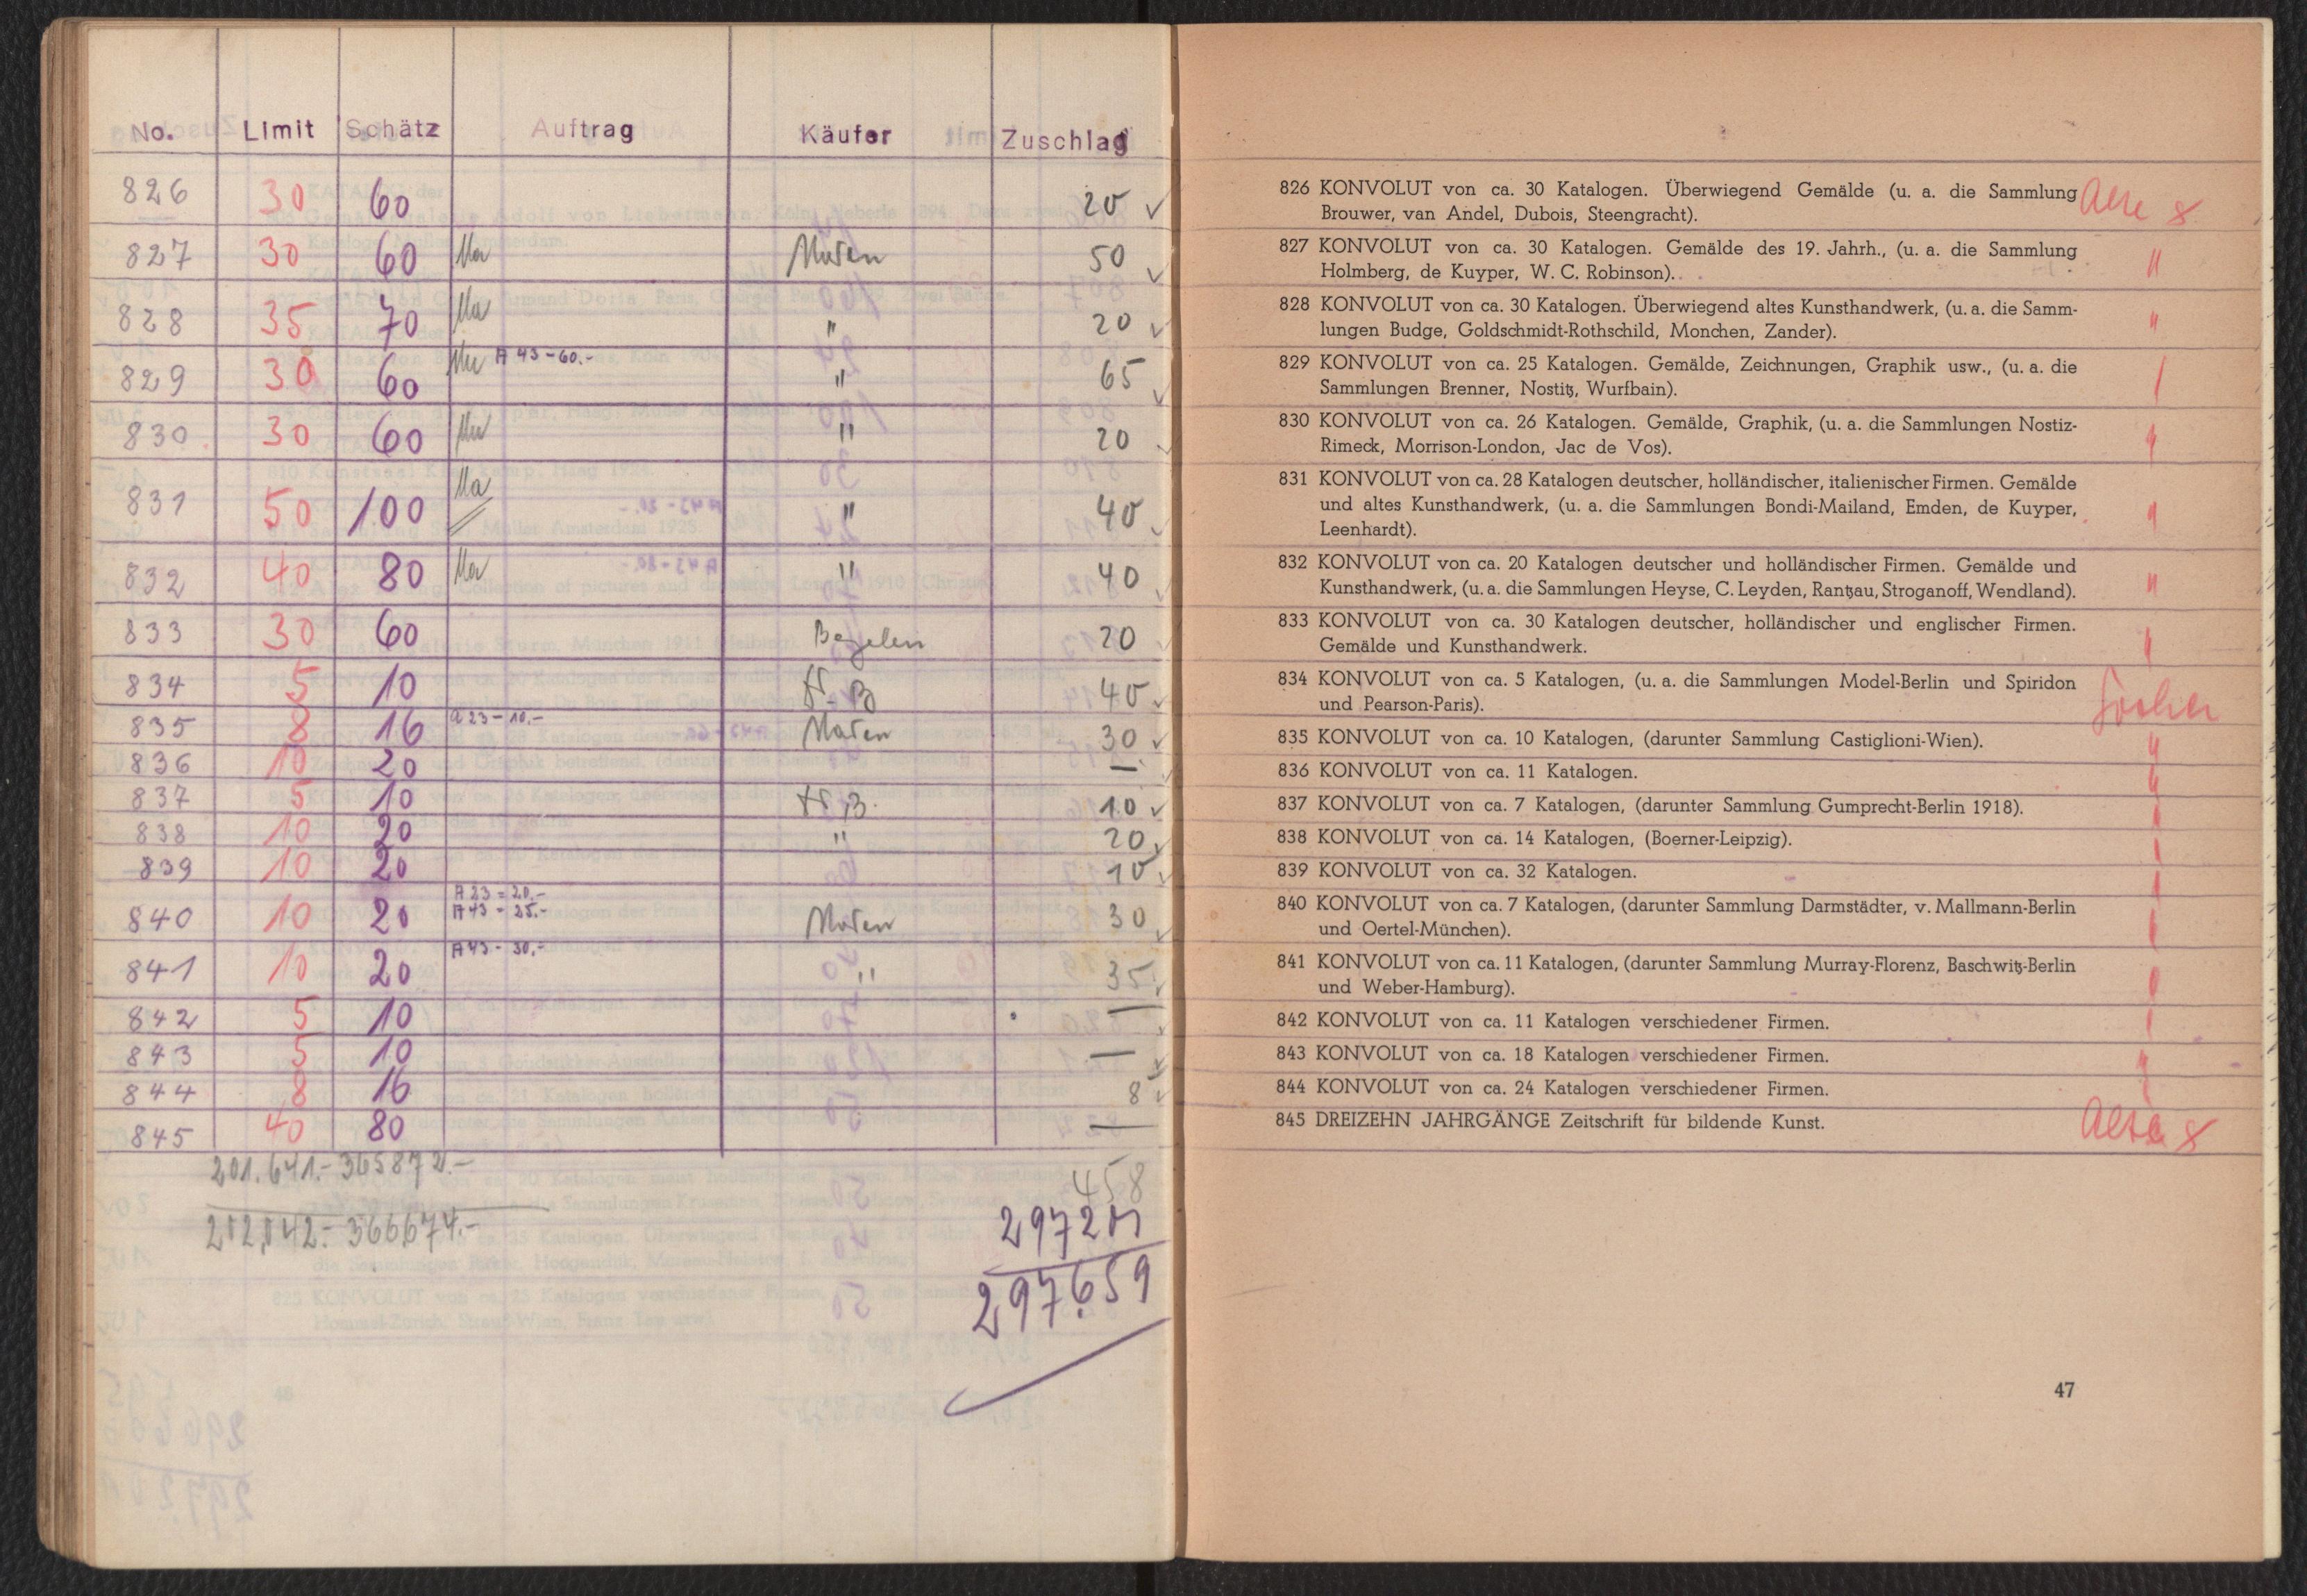 No. Limit Schätz Auftrag Käufer Zuschlag
826 30 60 20 ✓
827 30 60 50 ✓
828 35 70 " 20 ✓
829 30 60 A 43 - 60.- " 65 ✓
830 30 60 " 20
831 50 100 " 40
832 40 80 " 40
833 30 60 20
834 5 10 40 ✓
835 8 16 A 23 - 10.- 30 ✓
836 10 20 —
837 5 10 10 ✓
838 10 20 " 20 ✓
839 10 20 10 ✓
840 10 20 A 23 = 20.-
A 43 - 25.- 30 ✓
841 10 20 A 43 - 30.- " 35 ✓
842 5 10 —
843 5 10 —
844 8 16 8 ✓
845 40 80 —
201.641.- 365872.-
366674.-
458
297201
297659
826 KONVOLUT von ca. 30 Katalogen. Überwiegend Gemälde (u. a. die Sammlung
Brouwer, van Andel, Dubois, Steengracht).
827 KONVOLUT von ca. 30 Katalogen. Gemälde des 19. Jahrh., (u. a. die Sammlung
Holmberg, de Kuyper, W. C. Robinson).
828 KONVOLUT von ca. 30 Katalogen. Überwiegend altes Kunsthandwerk, (u. a. die Samm-
lungen Budge, Goldschmidt-Rothschild, Monchen, Zander).
829 KONVOLUT von ca. 25 Katalogen. Gemälde, Zeichnungen, Graphik usw., (u. a. die
Sammlungen Brenner, Nostitz, Wurfbain).
830 KONVOLUT von ca. 26 Katalogen. Gemälde, Graphik, (u. a. die Sammlungen Nostiz-
Rimeck, Morrison-London, Jac de Vos).
831 KONVOLUT von ca. 28 Katalogen deutscher, holländischer, italienischer Firmen. Gemälde
und altes Kunsthandwerk, (u. a. die Sammlungen Bondi-Mailand, Emden, de Kuyper,
Leenhardt).
832 KONVOLUT von ca. 20 Katalogen deutscher und holländischer Firmen. Gemälde und
Kunsthandwerk, (u. a. die Sammlungen Heyse, C. Leyden, Rantzau, Stroganoff, Wendland).
833 KONVOLUT von ca. 30 Katalogen deutscher, holländischer und englischer Firmen.
Gemälde und Kunsthandwerk.
834 KONVOLUT von ca. 5 Katalogen, (u. a. die Sammlungen Model-Berlin und Spiridon
und Pearson-Paris).
835 KONVOLUT von ca. 10 Katalogen, (darunter Sammlung Castiglioni-Wien).
836 KONVOLUT von ca. 11 Katalogen.
837 KONVOLUT von ca. 7 Katalogen, (darunter Sammlung Gumprecht-Berlin 1918).
838 KONVOLUT von ca. 14 Katalogen, (Boerner-Leipzig).
839 KONVOLUT von ca. 32 Katalogen.
840 KONVOLUT von ca. 7 Katalogen, (darunter Sammlung Darmstädter, v. Mallmann-Berlin
und Oertel-München).
841 KONVOLUT von ca. 11 Katalogen, (darunter Sammlung Murray-Florenz, Baschwitz-Berlin
und Weber-Hamburg).
842 KONVOLUT von ca. 11 Katalogen verschiedener Firmen.
843 KONVOLUT von ca. 18 Katalogen verschiedener Firmen.
844 KONVOLUT von ca. 24 Katalogen verschiedener Firmen.
845 DREIZEHN JAHRGÄNGE Zeitschrift für bildende Kunst.
47